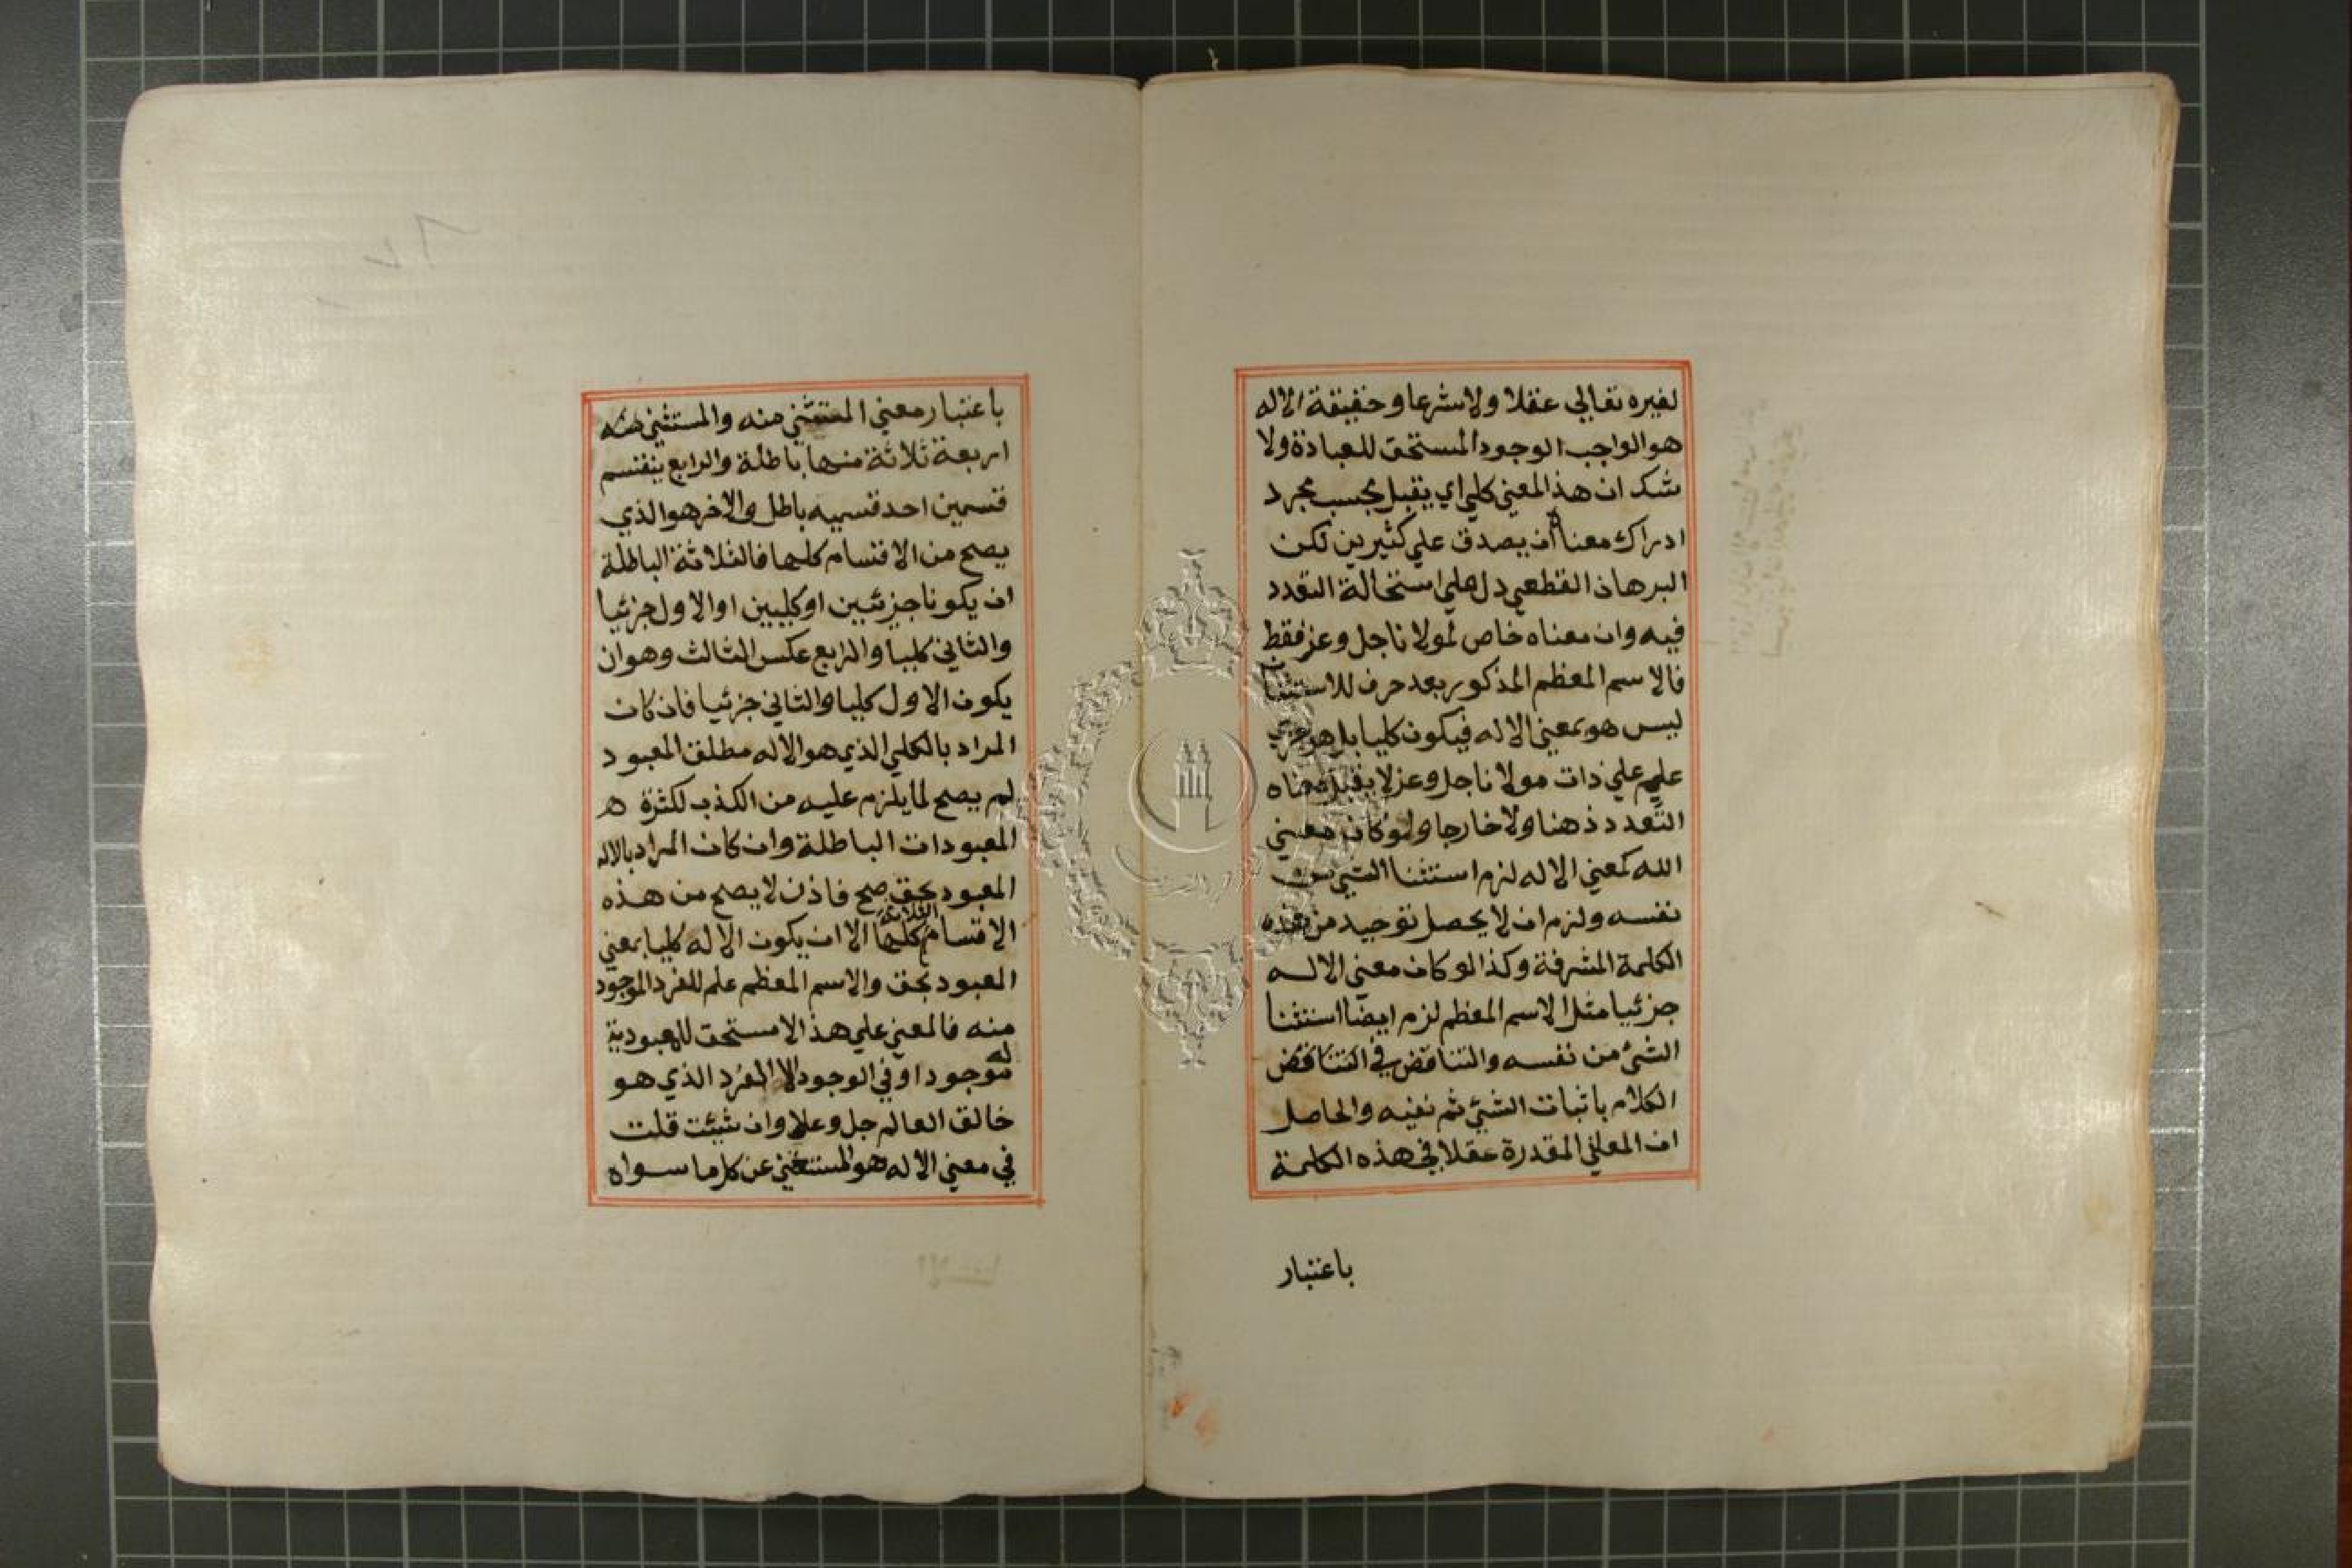 لغيره تعالي عقلا ولا شرعا وحقيقة الاله
هو الواجب الوجود المستحق للعبادة ولا
شك ان هذا المعني كلي اي يقبل بحسب مجرد
ادراك معناه ان يصدق علي كثيرين لكن
البرهان القطعي دل علي استحالة التعدد
فيه وان معناه خاص لمولانا جل وعز فقط
فالاسم المعظم المذكور بعد حرف للاستثنا
ليس هو بمعني الاله فيكون كليا بل هو جزي
علم علي ذات مولانا جل وعز لا يقبل معناه
التعدد ذهنا ولا خارجا ولو كان معني
الله كمعني الاله لزم استثنا الشي من
نفسه ولزم ان لا يحصل توحيد من هذه
الكلمة المشرفة وكذا لو كان معني الاله
جزئيا مثل الاسم المعظم لزم ايضا استثنا
الشئ من نفسه والتناقض في التناقض
الكلام باثبات الشئ ثم نفيه والحاصل
ان المعاني المقدرة عقلا في هذه الكلمة
باعتبار
باعتبار معني المستثني منه والمستثني منه
اربعة ثلاثة منها باطلة والرابع ينقسم
قسمين احد قسميه باطل والاخر هو الذي
يصح من الاقسام كلها فالثلاثة الباطلة
ان يكونا جزئيين او كليين او الاول جزئيا
والثاني كليا والرابع عكس الثالث وهو ان
يكون الاول كليا والثاني جزئيا فان كان
المراد بالكلي الذي هو الاله مطلق المعبود
لم يصح لما يلزم عليه من الكذب لكثرة ه
المعبودات الباطلة وان كان المراد بالاله
المعبود بحق صح فاذن لا يصح من هذه
الاقسام كلها الا ان يكون الاله كليا بمعني
المعبود بحق والاسم المعظم علم للفرد الموجود
منه فالمعني علي هذا لا مستحق للعبودية
له
موجود او في الوجود الا الفرد الذي هو
خالق العالم جل وعلا وان شئت قلت
في معني الاله هو المستغني عن كل ما سواه